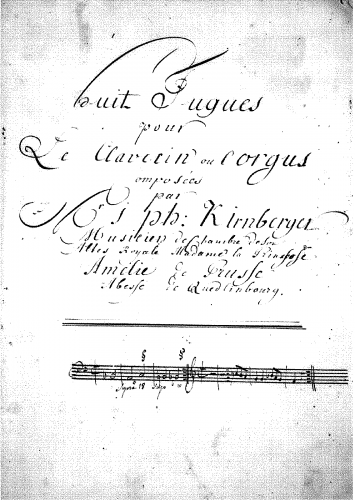 huit Fugues
pour
Le Clavecin ou l'orgus
Composées
par
Mr J Ph: Kirnberger
Musitien de Chambre de son
Altes Royale Madame la Prinsesse
Amélie de Prusse
Abesse de Quedlinbourg.